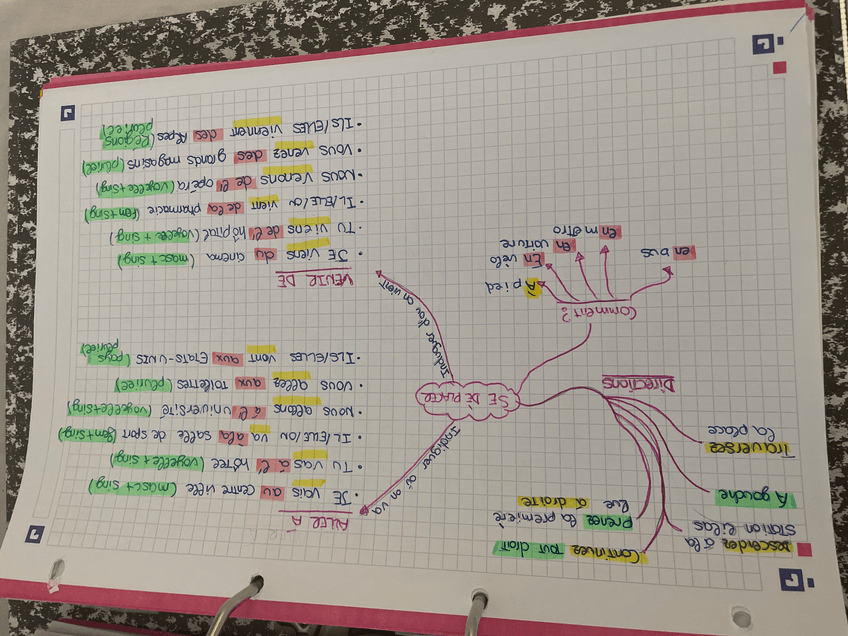 ALLER À
• JE vais au centre ville (masc+sing)
• TU vas à l' hôtel (voyelle+sing)
• IL/ELLE/ON va à la salle de sport (fem+sing)
• NOUS allons à l' Université (voyelle+sing)
• VOUS allez aux TOILETTES (pluriel)
• ILS/ELLES vont aux ETATS-UNIS (pays
pluriel)
VENIR DE
• JE viens du cinéma (masc+sing)
• TU viens de l' hôpital (voyelle + sing)
• IL/ELLE/ON vient de la pharmacie (fem+sing)
• NOUS venons de l' opéra (voyelle+sing)
• VOUS venez des grands magasins (pluriel)
• ILS/ELLES viennent des Alpes (Régions
pluriel)
SE DÉPLACER
Indiquer où on va
Indiquer d'où on vient
Continuez tout droit
Prenez la première
Rue à droite
Descendez à la
station Lilas
À gauche
Traversez
la place
Directions
Comment?
À pied
En vélo
en voiture
en métro
en bus